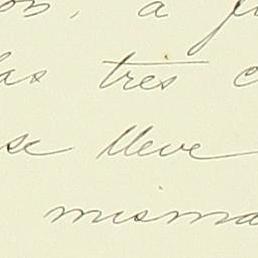 os, a
las tres
se lleve
misma